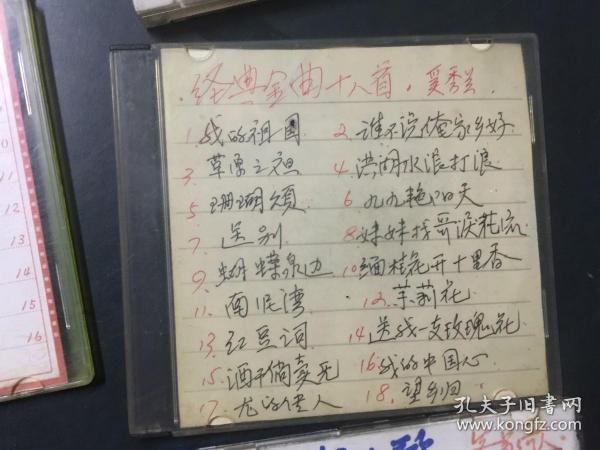 经典金曲十八首. 奚秀兰.
1. 我的祖国 2. 谁不说俺家乡好.
3. 草原之夜 4. 洪湖水浪打浪
5. 珊瑚颂 6. 九九艳阳天
7. 送别 8. 妹妹找哥泪花流
9. 蝴蝶泉边 10. 缅桂花开十里香
11. 南泥湾 12. 茉莉花
13. 红豆词 14. 送我一支玫瑰花
15. 酒干倘卖无 16. 我的中国心
17. 龙的传人 18. 望乡
11
12
13
14
15
16
孔夫子旧书网
www.kongfz.com